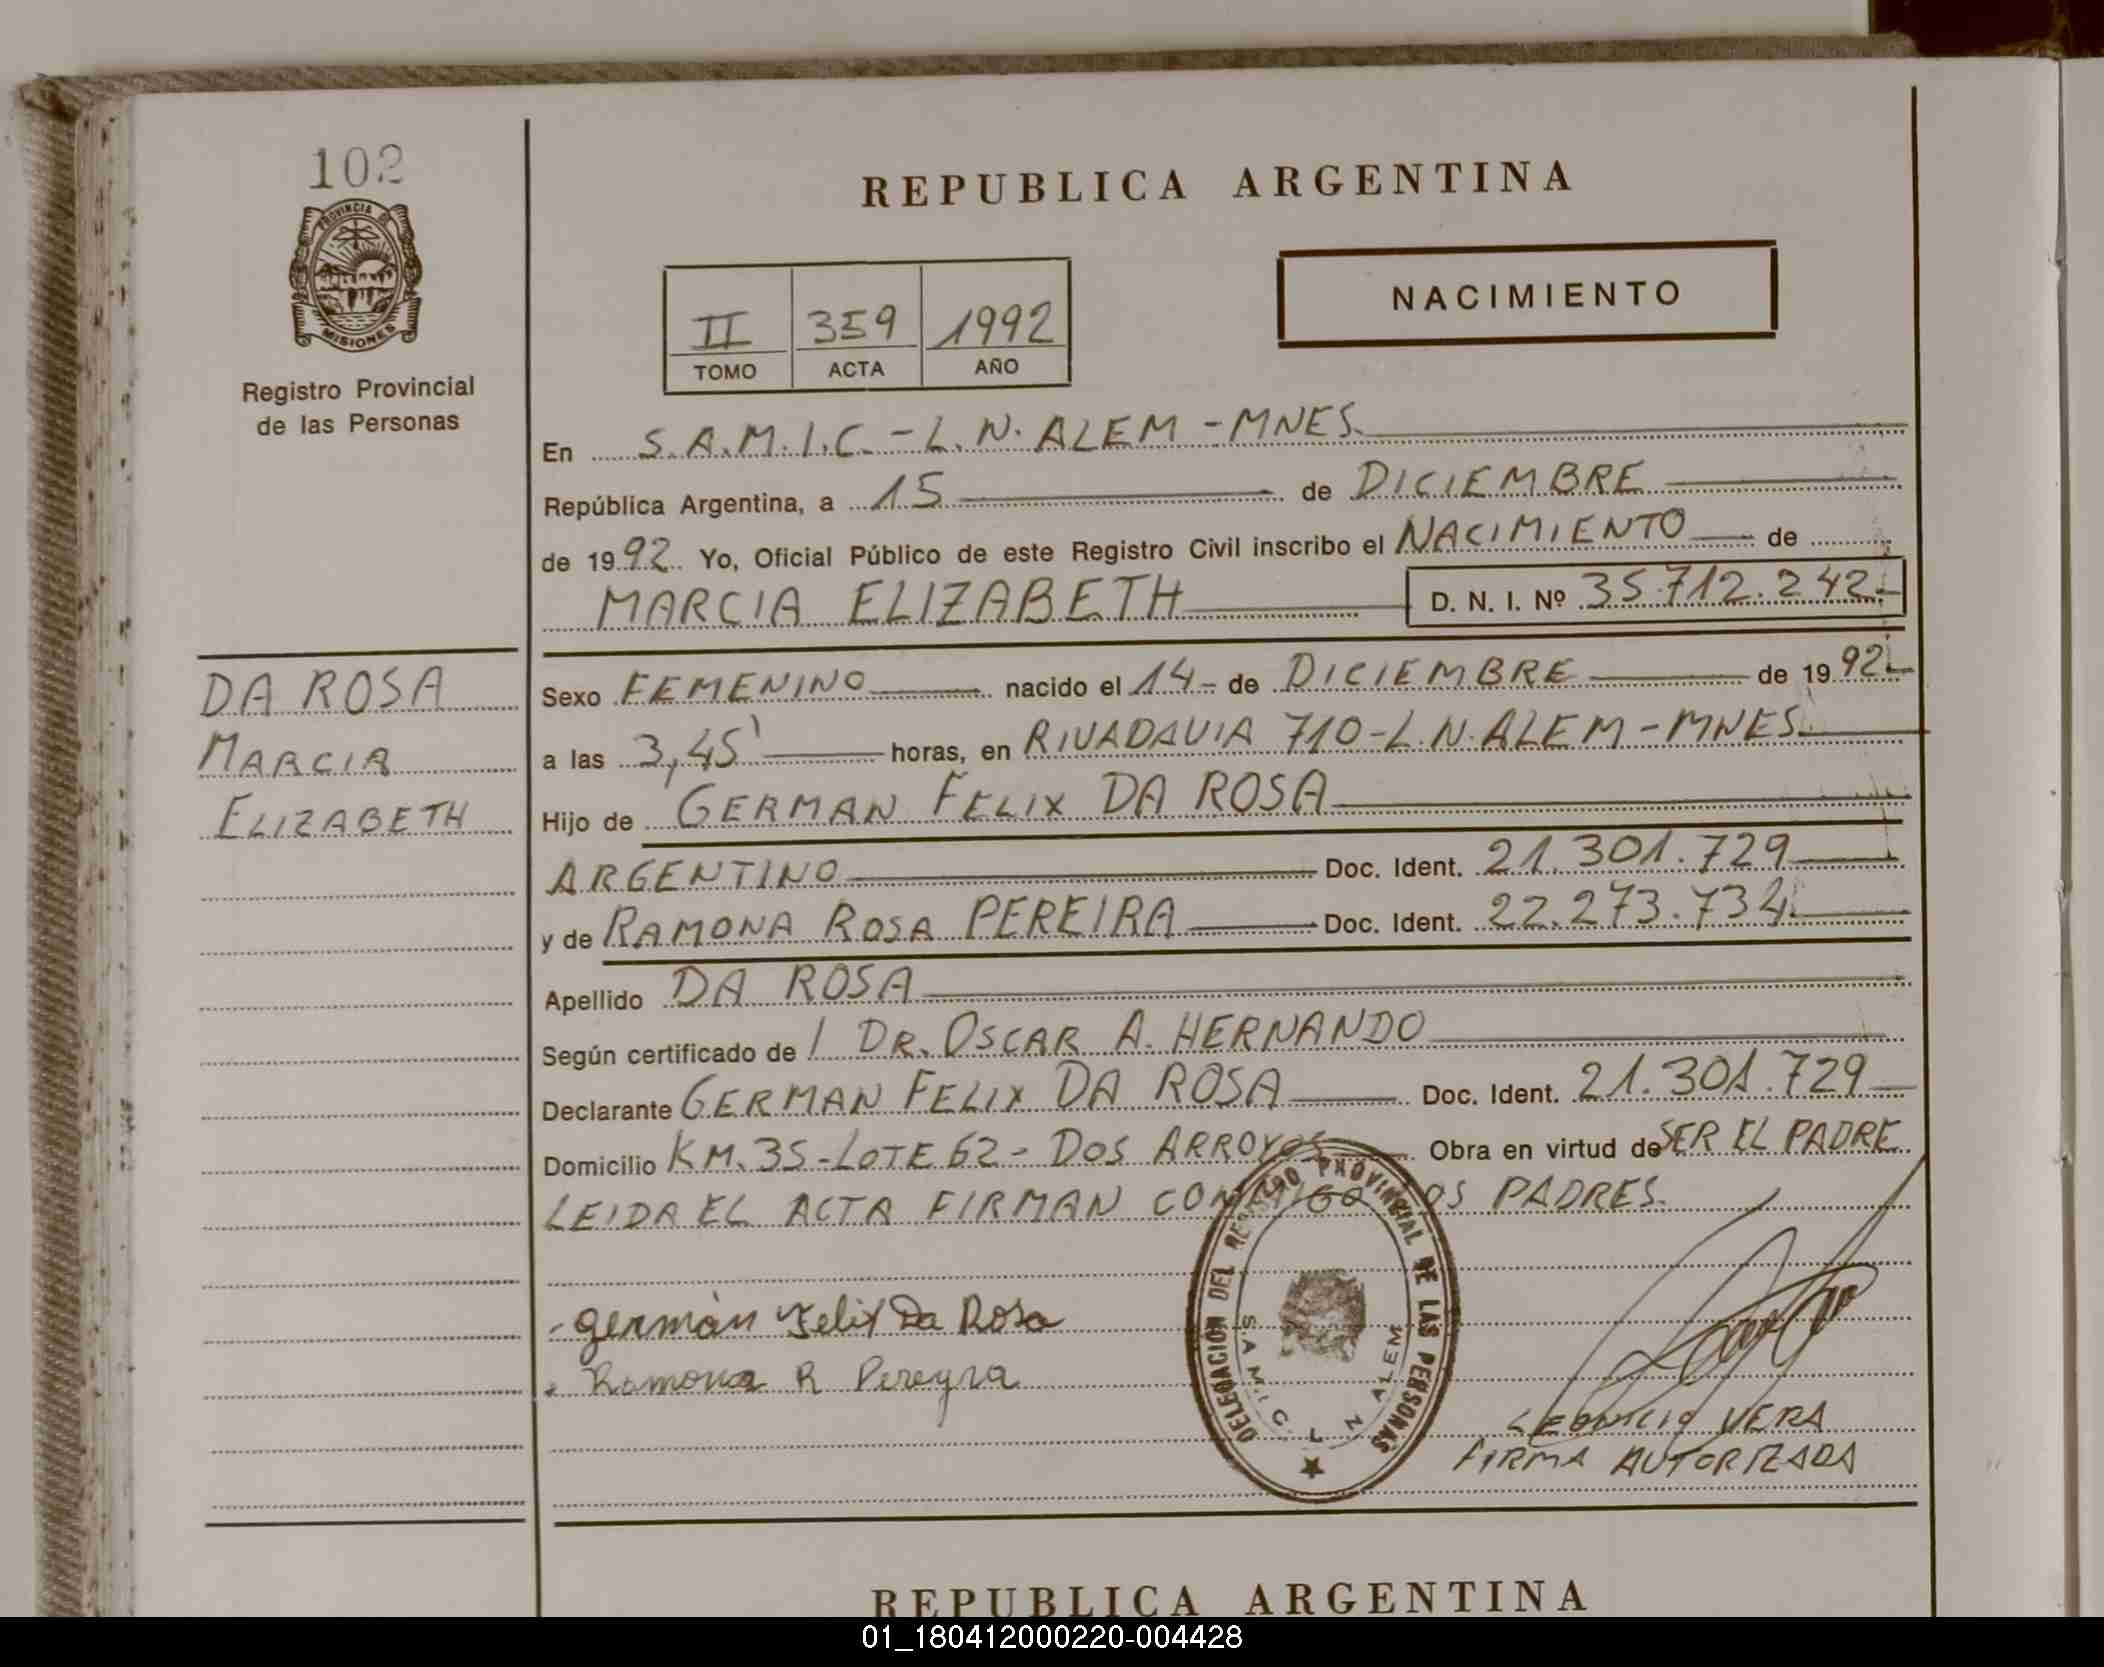 102
PROVINCIA DE
MISIONES
Registro Provincial
de las Personas
DA ROSA
MARCIA
ELIZABETH
REPUBLICA ARGENTINA
NACIMIENTO
II 359 1992
TOMO ACTA AÑO
En S.A.M.I.C.-L.N. ALEM-MNES.
República Argentina, a 15 de DICIEMBRE
de 1992. Yo, Oficial Público de este Registro Civil inscribo el NACIMIENTO de
MARCIA ELIZABETH D. N. I. Nº 35.712.242.-
Sexo FEMENINO nacido el 14- de DICIEMBRE de 1992.-
a las 3,45' horas, en RIVADAVIA 710-L.N. ALEM-MNES.
Hijo de GERMAN FELIX DA ROSA
ARGENTINO Doc. Ident. 21.301.729
y de RAMONA ROSA PEREIRA Doc. Ident. 22.273.734.
Apellido DA ROSA
Según certificado de / DR. OSCAR A. HERNANDO
Declarante GERMAN FELIX DA ROSA Doc. Ident. 21.301.729
Domicilio KM. 35-LOTE 62- DOS ARROYOS Obra en virtud de SER EL PADRE
LEIDA EL ACTA FIRMAN CONMIGO LOS PADRES.
- germán Felix Da Rosa
Ramona R Pereyra
DELEGACION DEL REGISTRO PROVINCIAL DE LAS PERSONAS
S.A.M.I.C. L N ALEM
VERA
FIRMA AUTORIZADA
REPUBLICA ARGENTINA
01_180412000220-004428